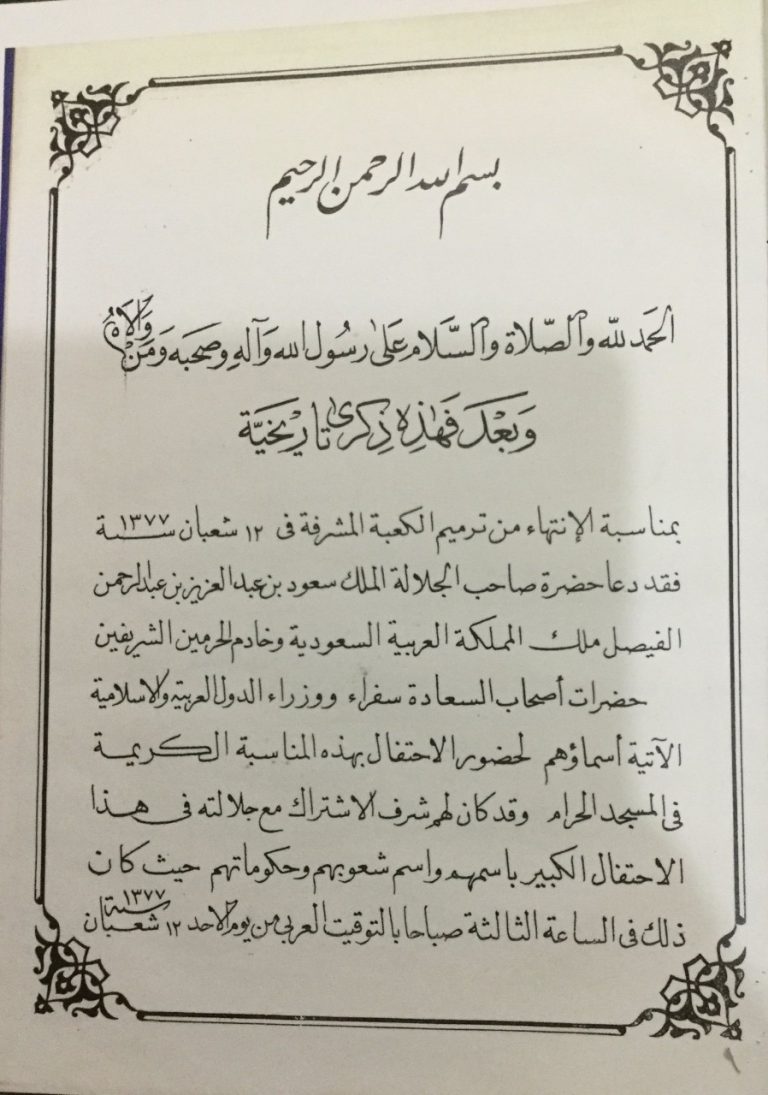 بسم الله الرحمن الرحيم
الحَمد لله والصّلاة والسَّلام عَلىٰ رسُول الله وَآلهِ وصَحبه وَمَنْ وَالَاهُ
وَبَعْدَ فَهٰذِهِ ذِكرىٰ تاريخيَّة
بمناسبة الإنتهاء من ترميم الكعبة المشرفة فى ١٢ شعبان سنة ١٣٧٧
فقد دعا حضرة صاحب الجلالة الملك سعود بن عبد العزيز بن عبد الرحمن
الفيصل ملك المملكة العربية السعودية وخادم الحرمين الشريفين
حضرات أصحاب السعادة سفراء ووزراء الدول العربية والاسلامية
الآتية أسماؤهم لحضور الاحتفال بهذه المناسبة الكريمة
فى المسجد الحرام وقد كان لهم شرف الاشتراك مع جلالته فى هذا
الاحتفال الكبير باسمهم واسم شعوبهم وحكوماتهم حيث كان
ذلك فى الساعة الثالثة صباحا بالتوقيت العربى من يوم الاحد ١٢ شعبان سنة ١٣٧٧
١